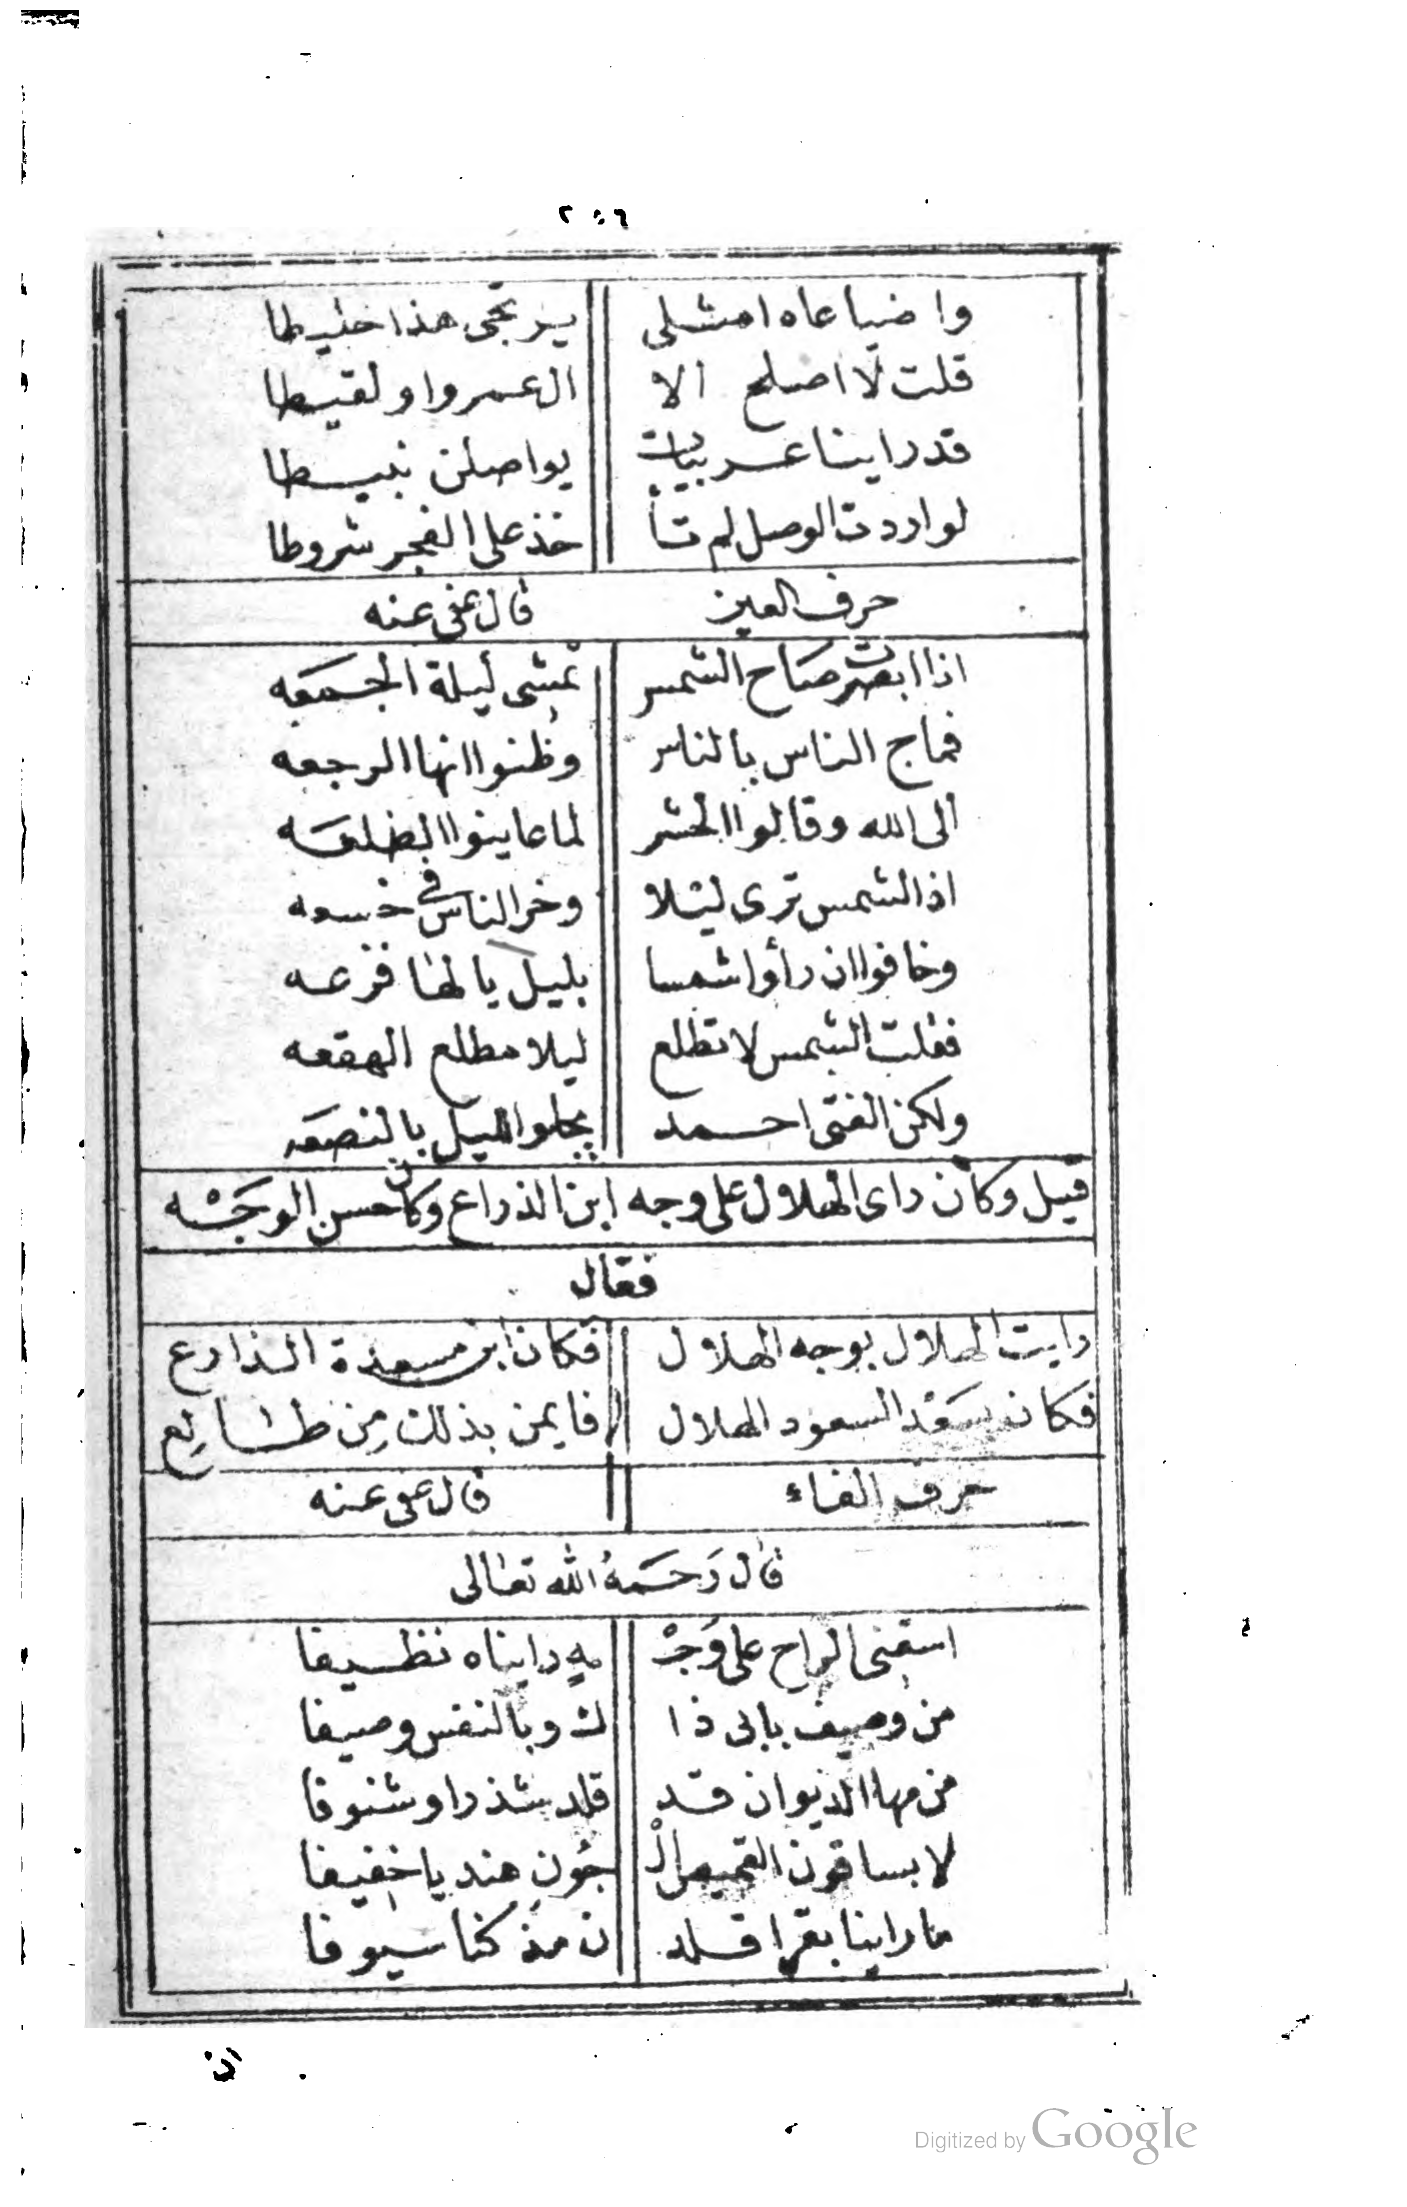 ٢٥٦
واضياعاه امثلى يرتجى هذا خليطا
قلت لا اصلح الا ال عمروا ولقيطا
قد راينا عربيات يواصلن نبيطا
لو اردت الوصل لم تأ خذ على الفجر شروطا
حرف العين قال عفى عنه
اذا ابصرت صاح الشمس تمشى ليلة الجمعه
فماج الناس بالناس وظنوا انها الرجعه
الى الله وقالوا الحشر لما عاينوا الطلعه
اذ الشمس ترى ليلا وخر الناس فى خسعه
وخافوا ان رأوا شمسا بليل يالها فزعه
فقلت الشمس لا تطلع ليلا مطلع الهقعه
ولكن الفتى احمد يجلوا الليل بالنصعه
قيل وكان راى الهلال على وجه ابن الذراع وكان حسن الوجه
فقال
رايت الهلال بوجه الهلال فكان ابن مسعدة الذارع
فكان سعد السعود الهلال فايمن بذلك من طائع
حرف الفاء قال عفى عنه
قال رحمه الله تعالى
اسقنى الراح على وجْ به رايناه نظيفا
من وصيف بابى ذا ك وبالنفس وصيفا
من مها الديوان قد قلد شذرا وشنوفا
لابسا فوق القميص الْ جون هنديا خفيفا
ما راينا بقرا قلد ن مذ كنا سيوفا
ان
Digitized by Google